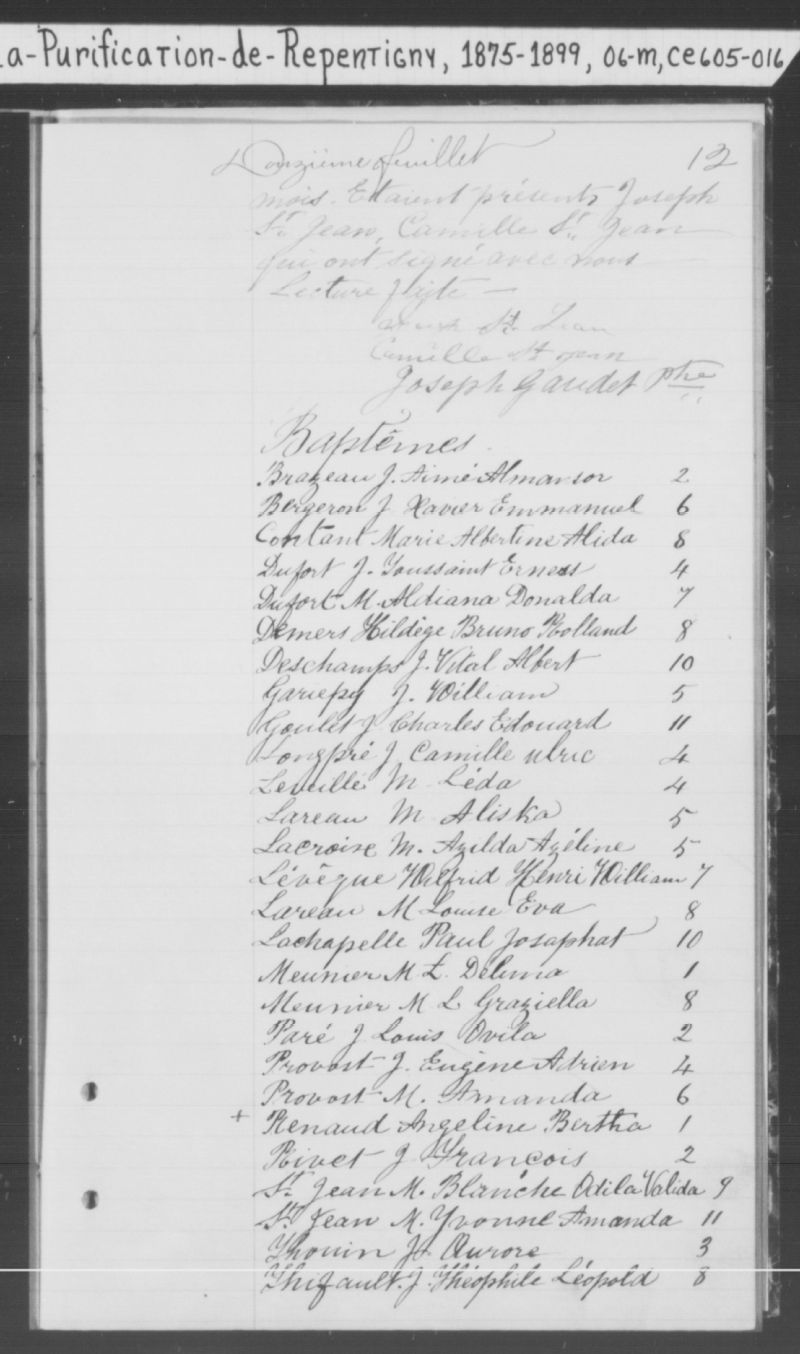 La-Purification-de-Repentigny, 1875-1899, 06-m, ce605-016
Douzième feuillet 12
mois. Etaient présents Joseph
St. Jean, Camille St. Jean
qui ont signé avec nous
Lecture faite —
St. Jean
Camille St jean
Joseph Gaudet ptre
Baptêmes
Brazeau J. Aimé Almansor 2
Bergeron J Xavier Emmanuel 6
Contant Marie Albertine Alida 8
Dufort J. Toussaint Ernest 4
Dufort M. Aldiana Donalda 7
Demers Hildège Bruno Rolland 8
Deschamps J. Vital Albert 10
Gariepy J. William 5
Goulet J Charles Edouard 11
Longpré J Camille ulric 4
Leveillé M Léda 4
Lareau M Aliska 5
Lacroix M. Azilda Azéline 5
Lévêque Wilfrid Henri William 7
Lareau M Louise Eva 8
Lachapelle Paul Josaphat 10
Meunier M L. Delima 1
Meunier M L Graziella 8
Paré J Louis Ovila 2
Provost J. Eugène Adrien 4
Provost M. Amanda 6
+ Renaud Angeline Bertha 1
Rivet J François 2
St. Jean M. Blanche Odila Valida 9
St. Jean M. Yvonne Amanda 11
Thouin Aurore 3
Thifault. J. Théophile Léopold 8